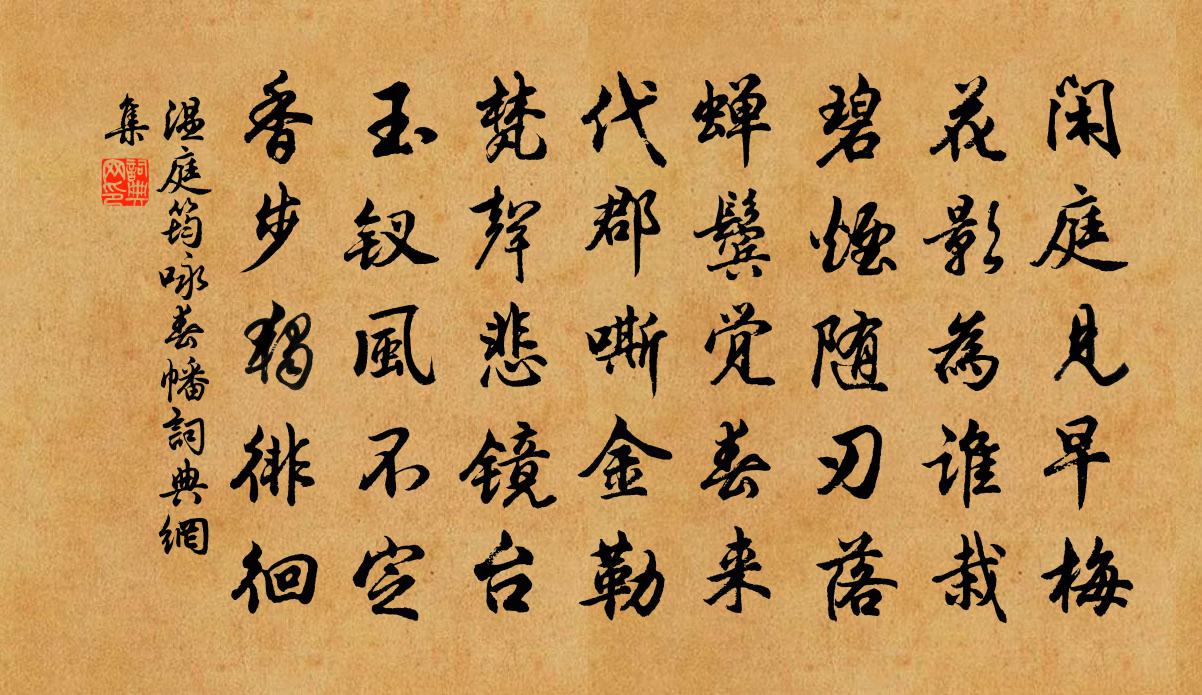 闲庭見早梅
花影為谁栽
碧煙随刃落
蝉鬓觉春来
代郡嘶金勒
梵声悲镜台
玉钗風不定
香步獨徘徊
温庭筠咏春幡詞典網
集
詞典
网印